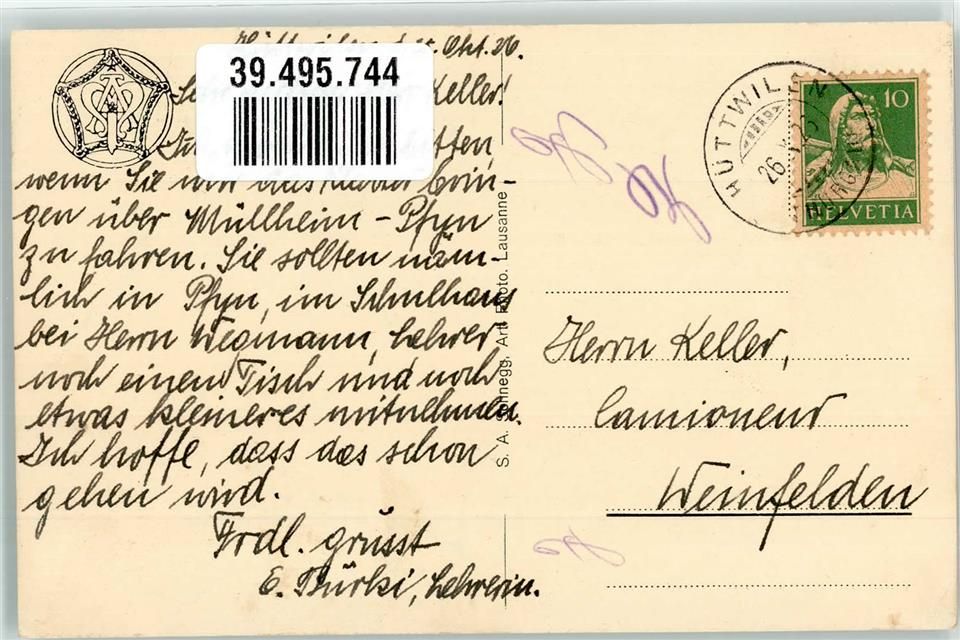 Hüttwilen, d. 25. Okt. 26.
39.495.744
Keller!
wenn Sie mir das Klavier brin-
gen über Müllheim - Pfyn
zu fahren. Sie sollten näm-
lich in Pfyn, im Schulhaus
bei Herrn Wegmann, Lehrer
noch einen Tisch und noch
etwas kleineres mitnehmen.
Ich hoffe, dass das schon
gehen wird.
Frdl. grüsst
E. Bürki, Lehrerin.
S. A. Schnegg, Art. Photo. Lausanne
HÜTTWILEN
26
10
HELVETIA
Herrn Keller,
Camioneur
Weinfelden